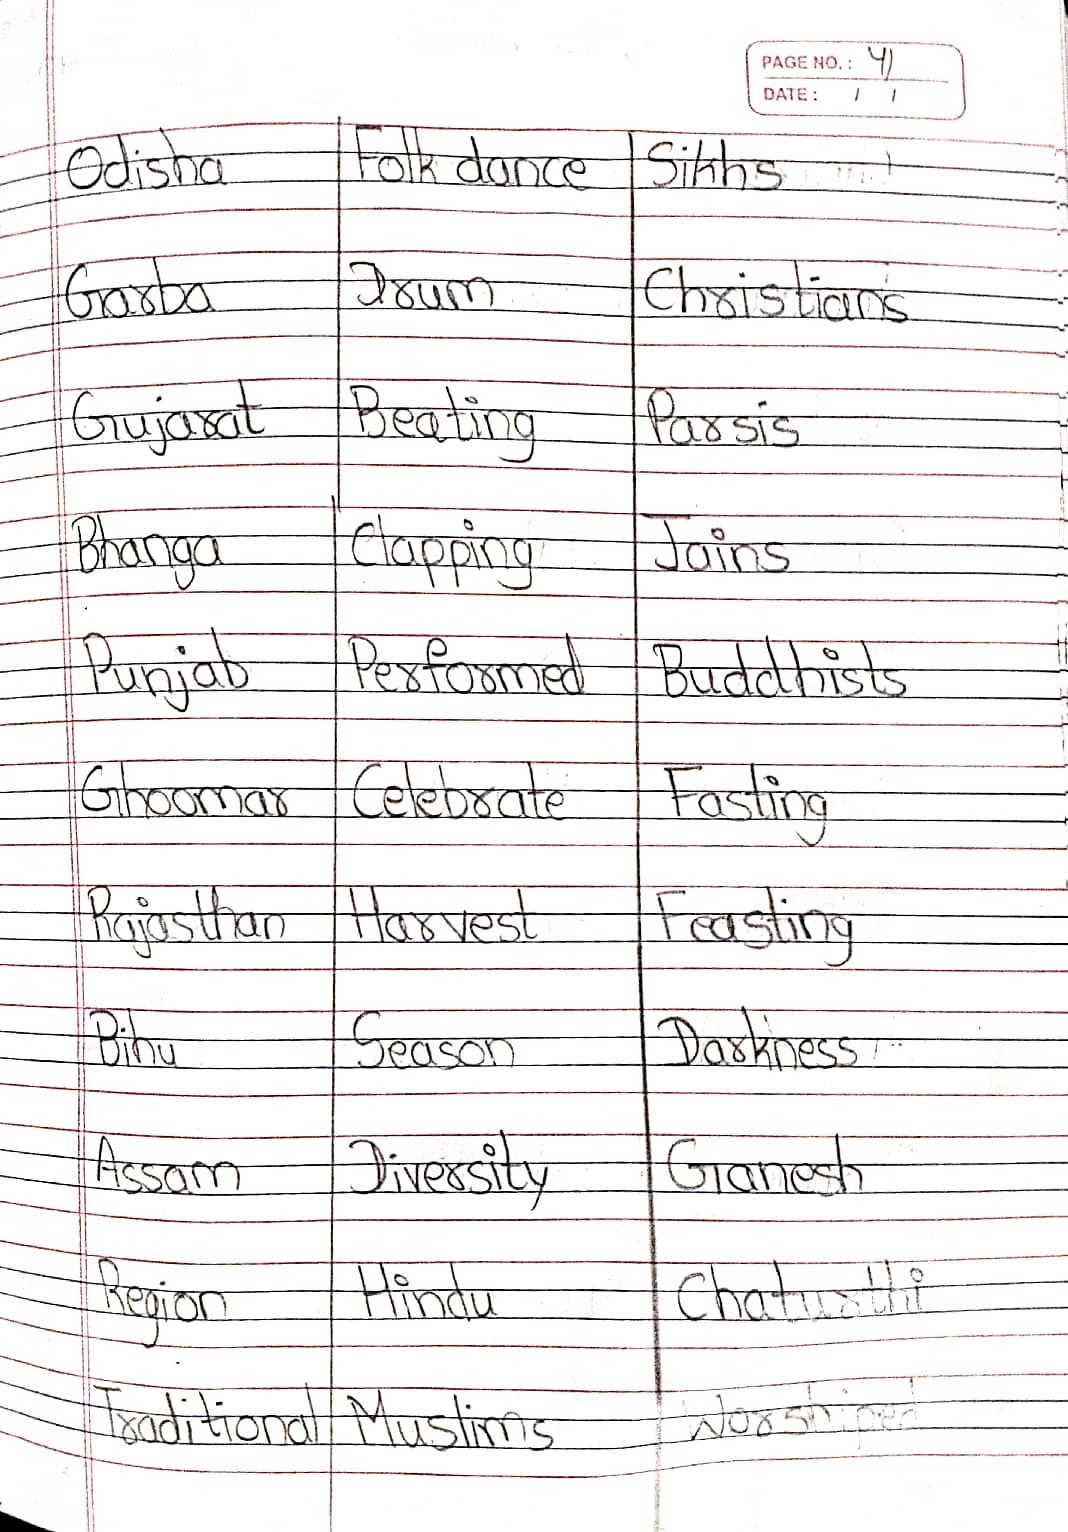 PAGE NO.: 41
DATE: / /
Odisha Folk dance Sikhs
Garba Drum Christians
Gujarat Beating Parsis
Bhanga Clapping Jains
Punjab Performed Buddhists
Ghoomar Celebrate Fasting
Rajasthan Harvest Feasting
Bihu Season Darkness
Assam Diversity Ganesh
Region Hindu Chaturthi
Traditional Muslims Worshiped